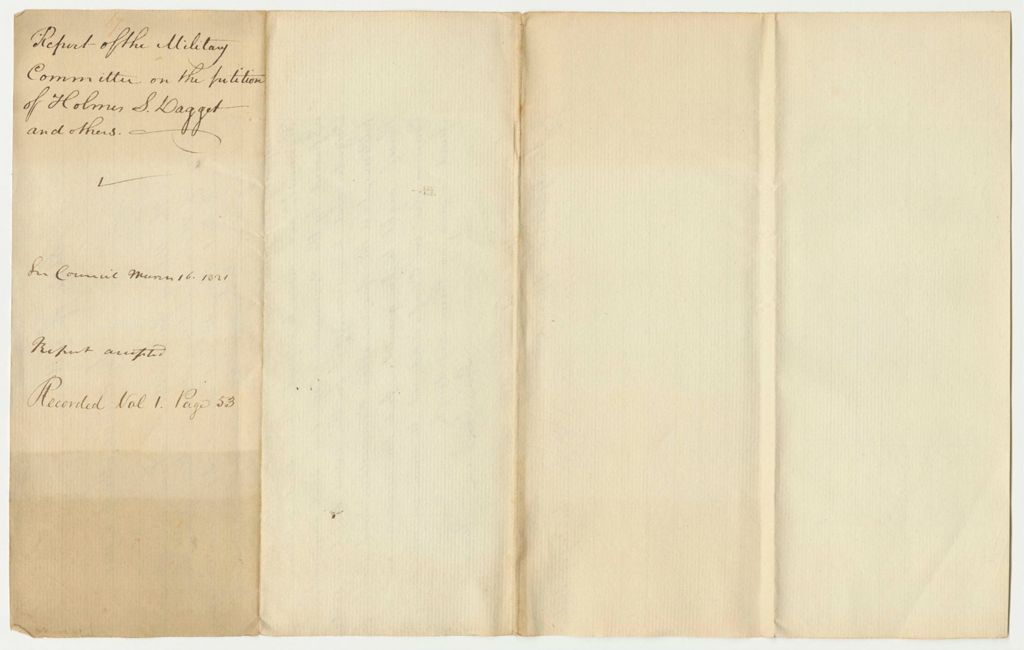 Report of the Military
Committee on the petition
of Holmes S. Dagget
and others.
In Council March 16. 1821
Report accepted
Recorded Vol 1. Page 53